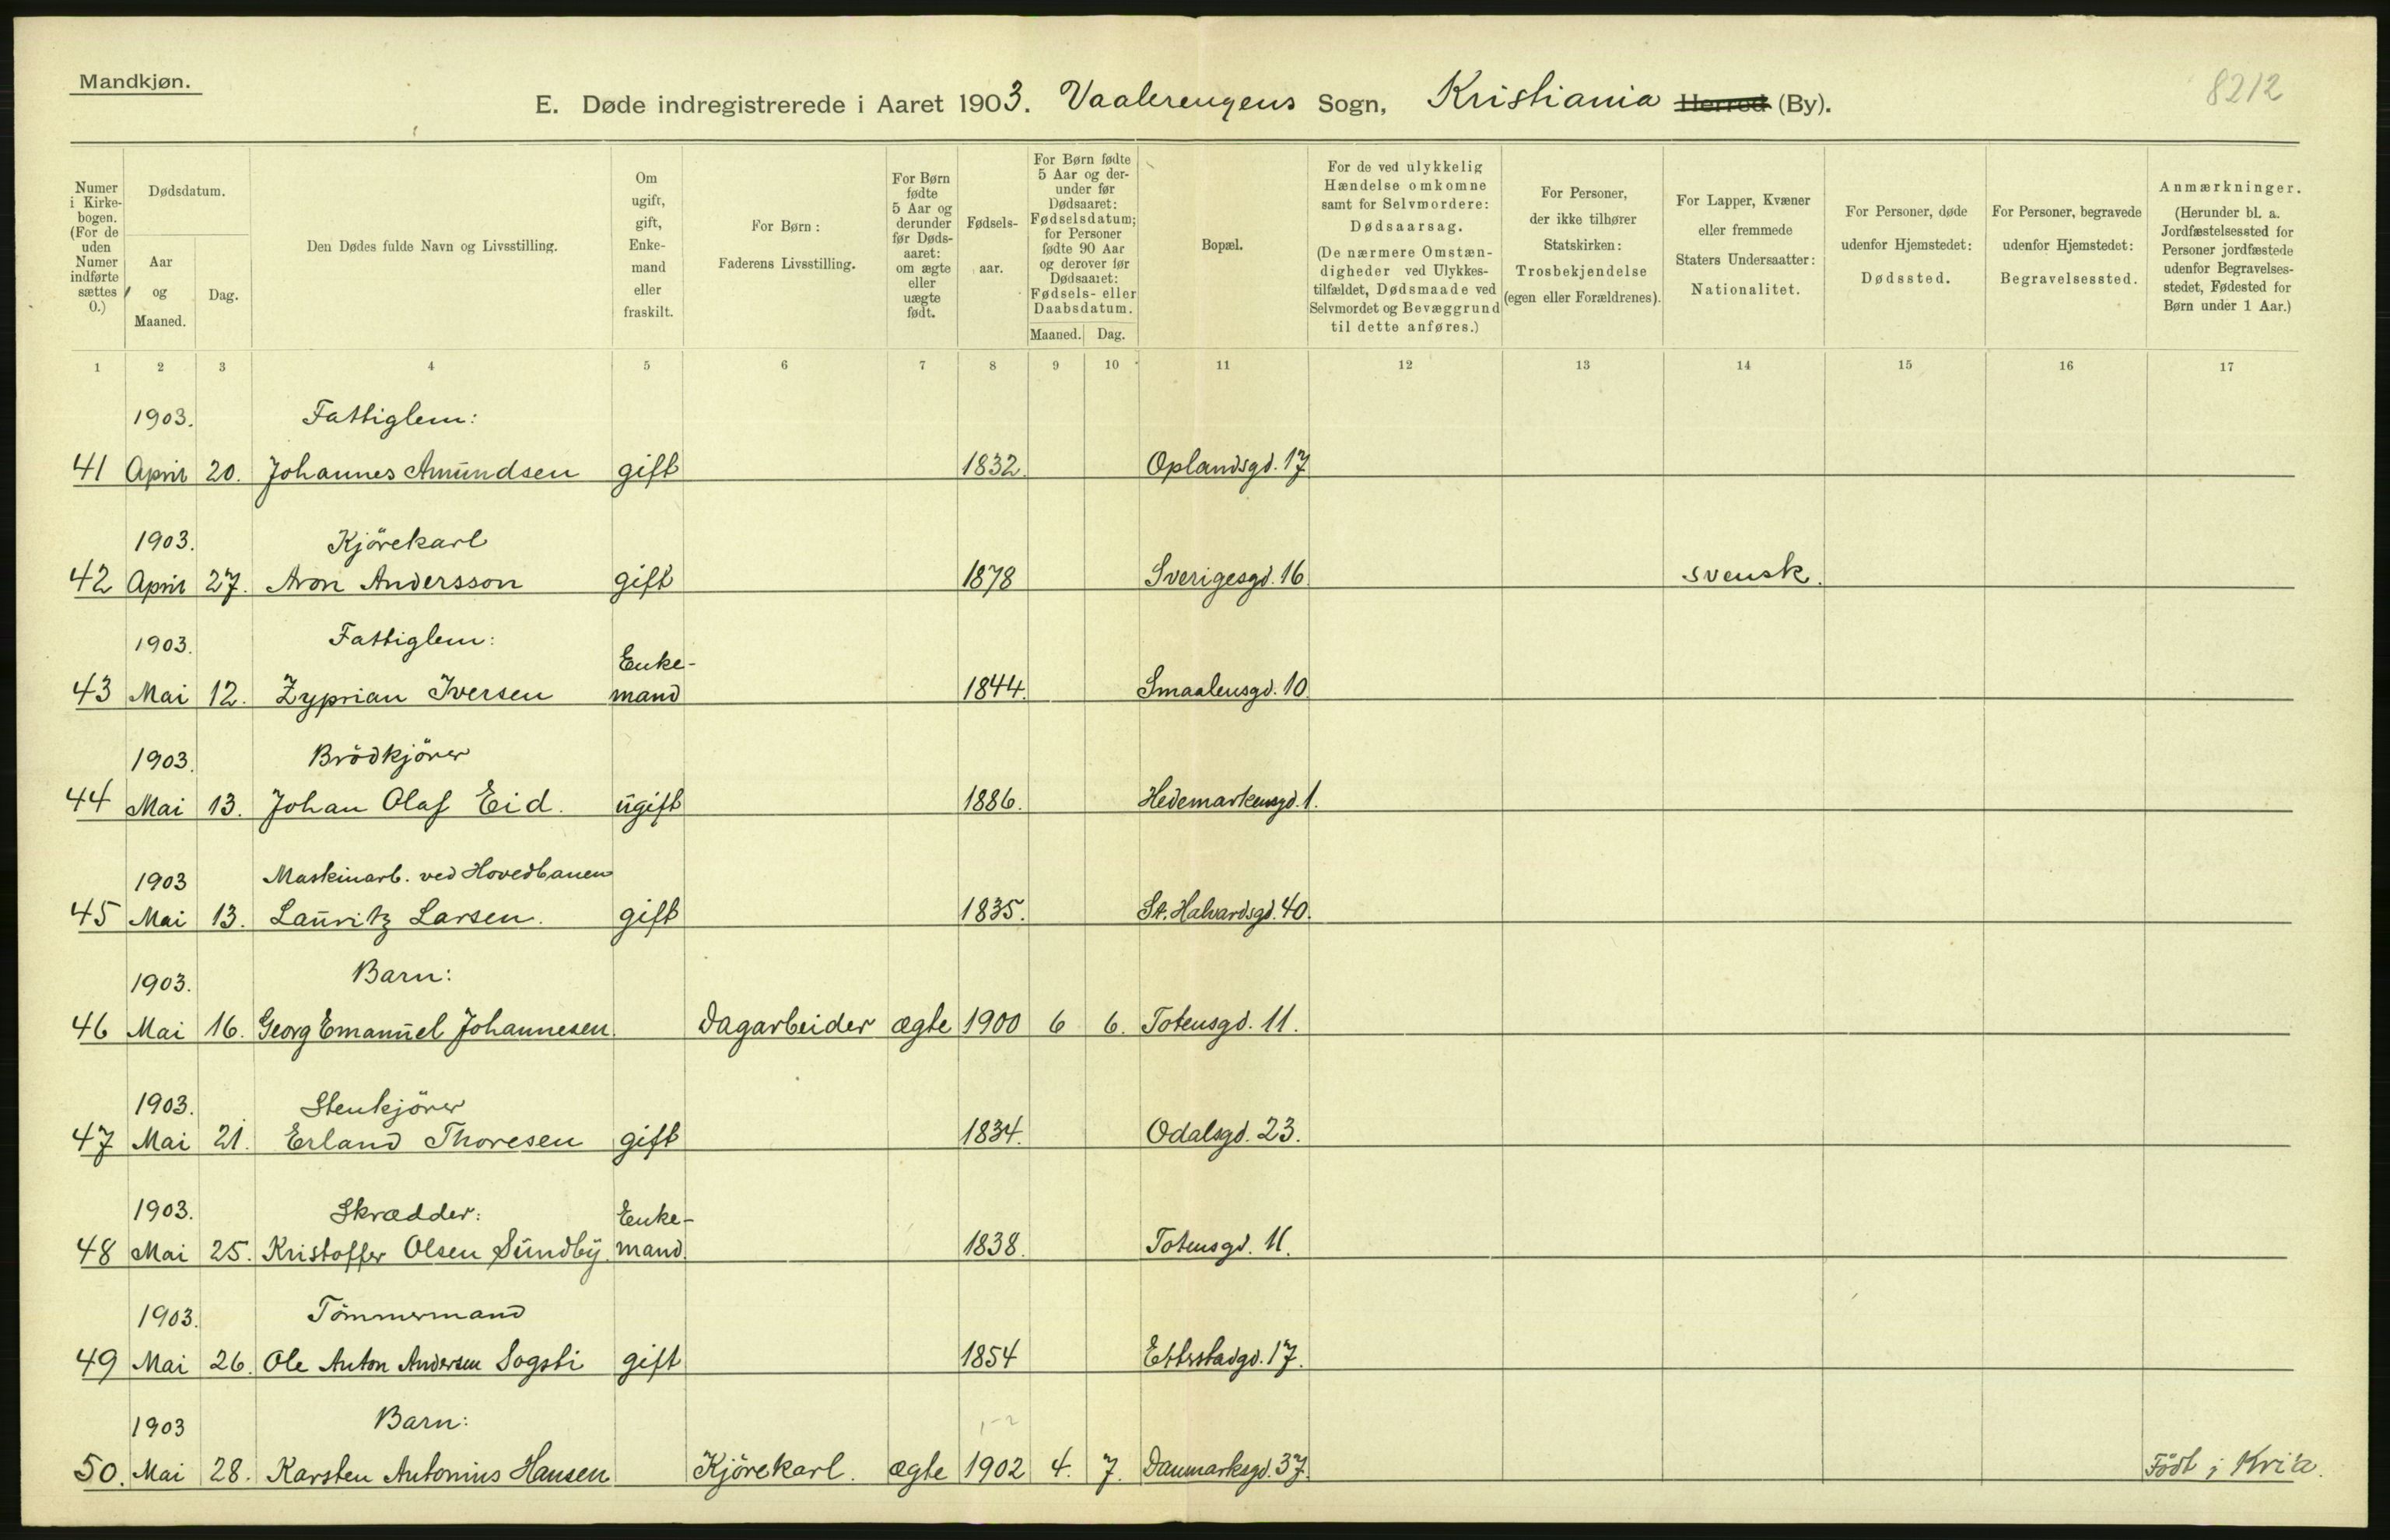 Mandkjøn.
E. Døde indregistrerede i Aaret 1903. Vaalerengens Sogn, Kristiania Herred (By).
8212
Numer i Kirkebogen. (For de uden Numer indførte sættes 0.)
Dødsdatum.
Aar og Maaned.
Dag.
Den Dødes fulde Navn og Livsstilling.
Om ugift, gift, Enkemand eller fraskilt.
For Børn: Faderens Livsstilling.
For Børn fødte 5 Aar og derunder før Dødsaaret: om ægte eller uægte født.
Fødselsaar.
For Børn fødte 5 Aar og derunder før Dødsaaret: Fødselsdatum; for Personer fødte 90 Aar og derover før Dødsaaret: Fødsels- eller Daabsdatum.
Maaned. Dag.
Bopæl.
For de ved ulykkelig Hændelse omkomne samt for Selvmordere: Dødsaarsag. (De nærmere Omstændigheder ved Ulykkestilfældet, Dødsmaade ved Selvmordet og Bevæggrund til dette anføres.)
For Personer, der ikke tilhører Statskirken: Trosbekjendelse (egen eller Forældrenes).
For Lapper, Kvæner eller fremmede Staters Undersaatter: Nationalitet.
For Personer, døde udenfor Hjemstedet: Dødssted.
For Personer, begravede udenfor Hjemstedet: Begravelsessted.
Anmærkninger. (Herunder bl. a. Jordfæstelsessted for Personer jordfæstede udenfor Begravelsesstedet, Fødested for Børn under 1 Aar.)
1 2 3 4 5 6 7 8 9 10 11 12 13 14 15 16 17
1903. Fattiglem:
41 April 20. Johannes Amundsen gift 1832. Oplandsgd. 17
1903. Kjörekarl
42 April 27. Aron Andersson gift 1878 Sverigesgd. 16. svensk.
1903. Fattiglem: Enke-
43 Mai 12. Zyprian Iversen mand 1844. Smaalensgd. 10.
1903. Brödkjörer
44 Mai 13. Johan Olaf Eid. ugift 1886. Hedemarkensgd. 1.
1903 Maskinarb. ved Hovedbanen
45 Mai 13. Lauritz Larsen. gift 1835. St. Halvardsgd. 40.
1903. Barn:
46 Mai 16. Georg Emanuel Johannesen. Dagarbeider ægte 1900 6 6. Totensgd. 11.
1903. Stenkjörer
47 Mai 21. Erland Thoresen gift 1834. Odalsgd. 23.
1903. Skrædder: Enke-
48 Mai 25. Kristoffer Olsen Sundby. mand. 1838. Totensgd. 11.
1903. Tömmermand
49 Mai 26. Ole Anton Andersen Sogsti gift 1854 Etterstadgd. 17.
1903 Barn:
50. Mai 28. Karsten Antonius Hansen Kjörekarl. ægte 1902 4. 7. Danmarksgd. 37. Födt i Kri'a.